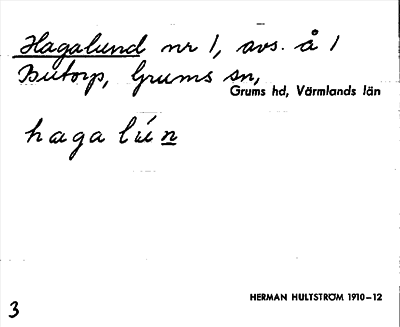 Hagalund nr 1, avs. å 1
Butorp, Grums sn,
Grums hd, Värmlands län
haga lún
HERMAN HULTSTRÖM 1910–12
3